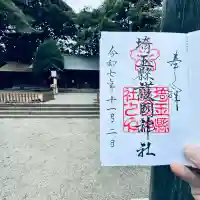 奉拝
埼玉縣護國神社
令和七年十一月二日